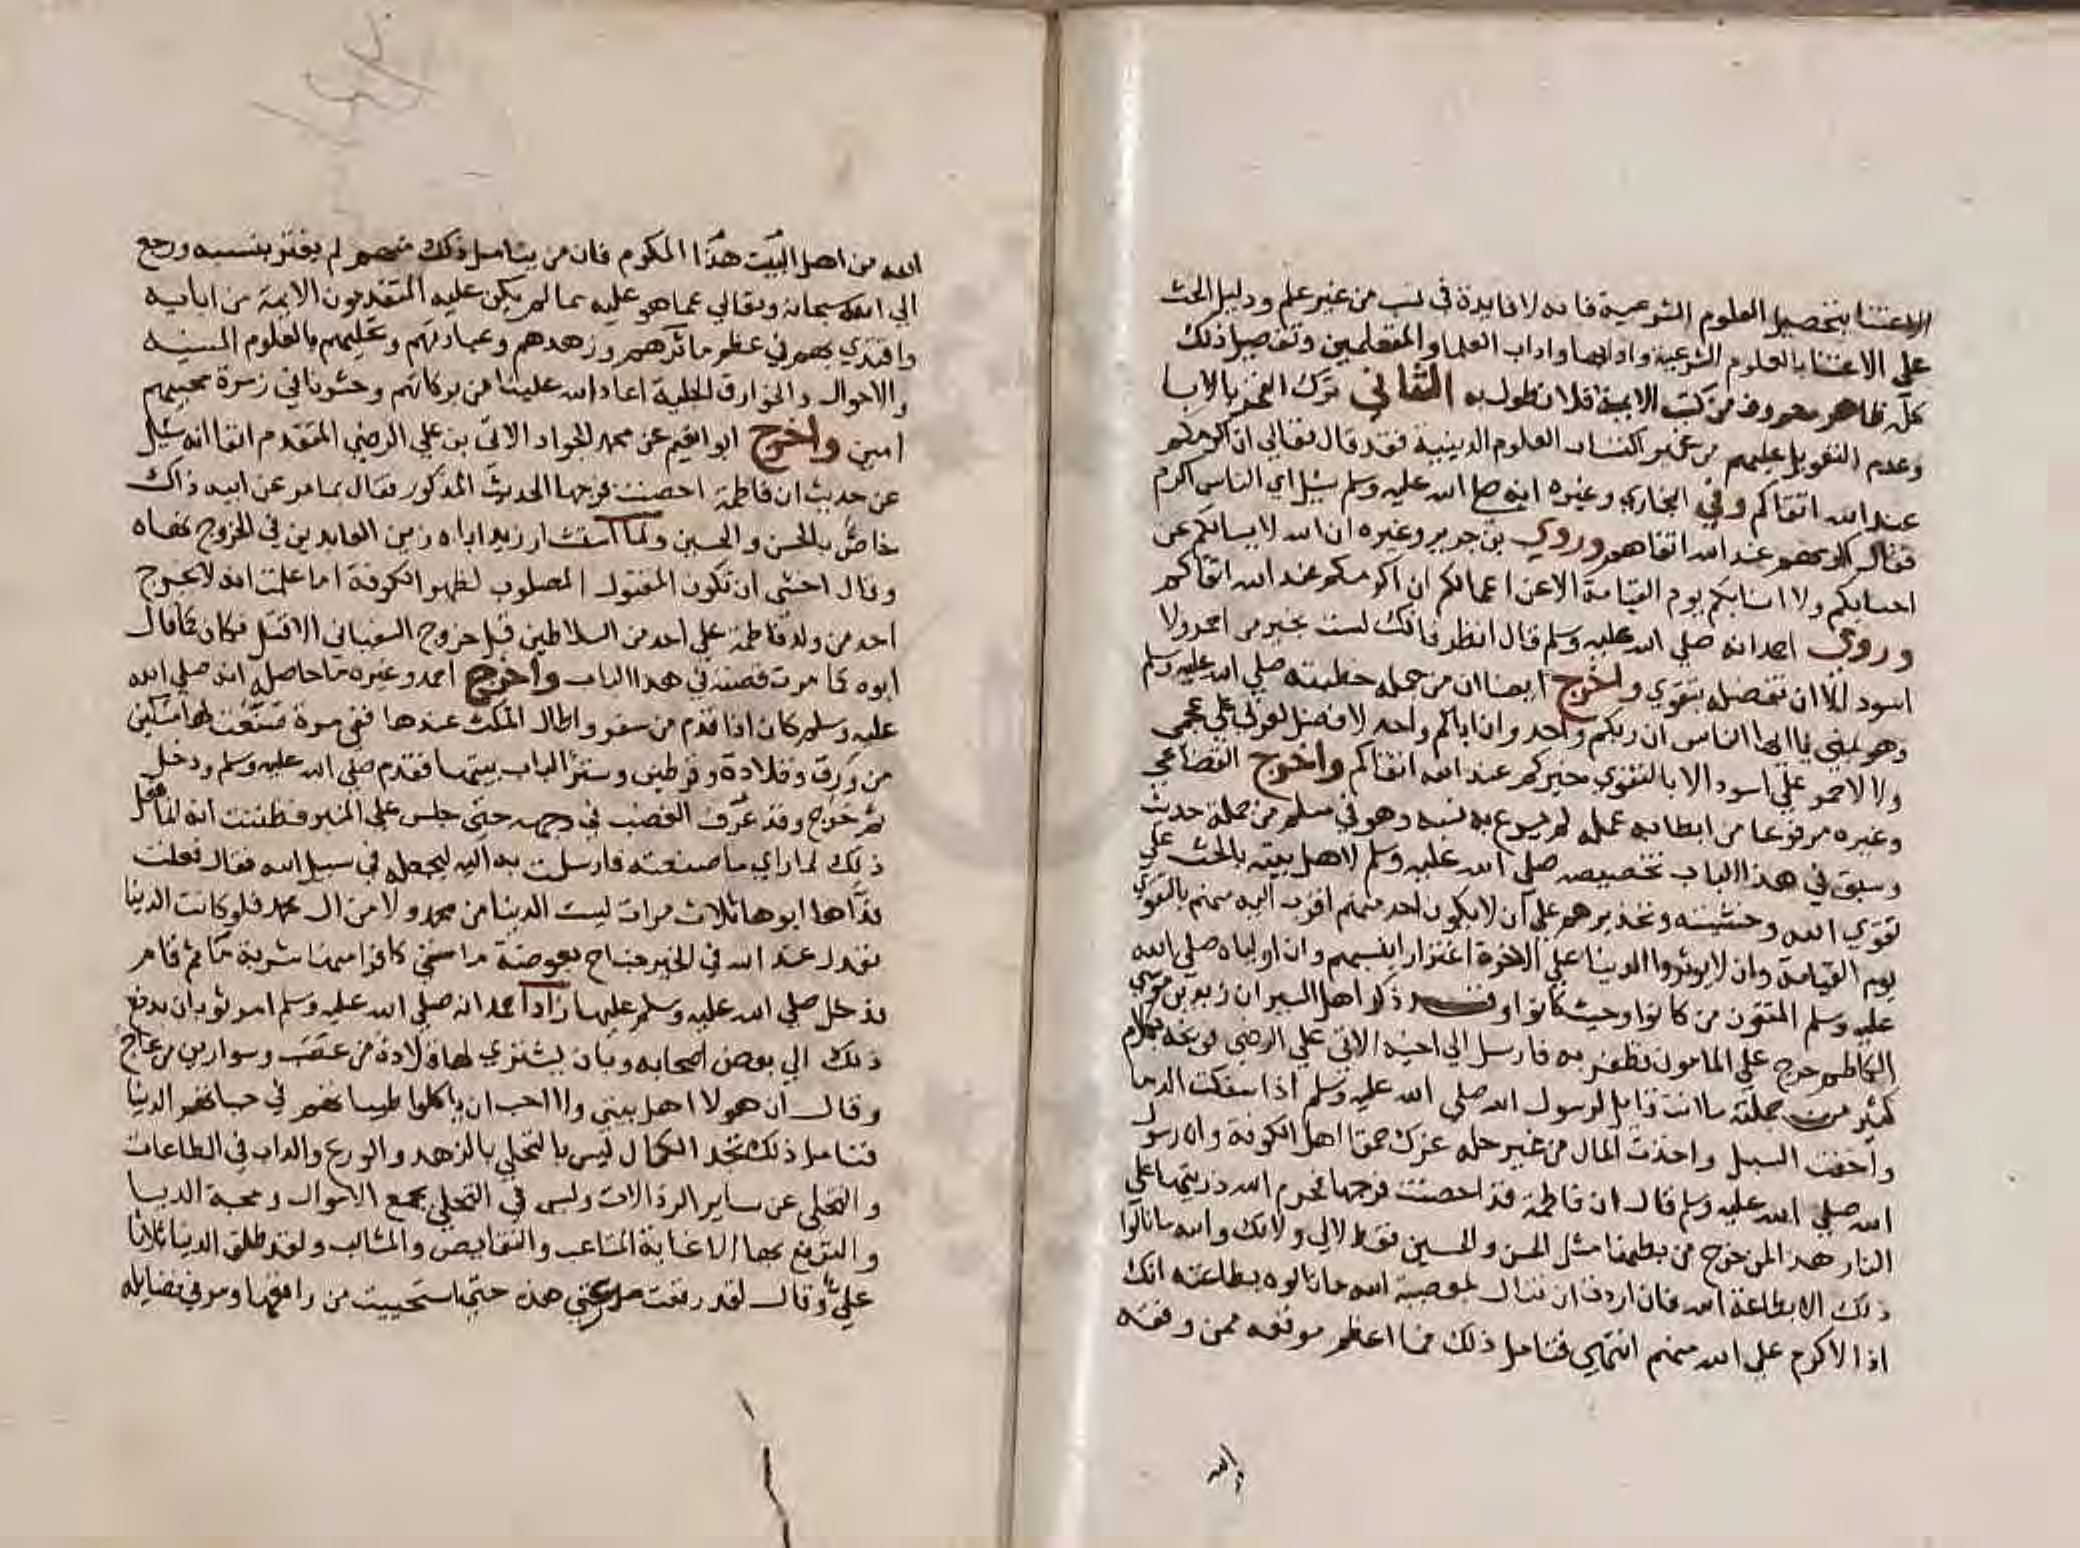 الاعتنا بتحصيل العلوم الشرعية فانه لا فايدة في نسب من غير علم ودليل الحث
على الاعتنا بالعلوم الشرعية وادابها واداب العلما والمتعلمين وتفصيل ذلك
كله ظاهر معروف من كتب الايمة فلا نطول به الثاني ترك الفخر بالابا
وعدم التعويل عليهم من غير اكتساب العلوم الدينية فقد قال تعالى ان اكرمكم
عند الله اتقاكم وفي البخاري وغيره انه صلى الله عليه وسلم سيل اي الناس اكرم
فقال اكرمهم عند الله اتقاهم وروي بن جرير وغيره ان الله لا يسالكم عن
احسابكم ولا انسابكم يوم القيامة الا عن اعمالكم ان اكرمكم عند الله اتقاكم
وروى احمد انه صلى الله عليه وسلم قال انظر فانك لست بخير من احمر ولا
اسود الا ان تفضله بتقوي واخرج ايضا ان من جمله خطبته صلى الله عليه وسلم
وهو بمنى يا ايها الناس ان ربكم واحد وان اباكم واحد لا فضل لعربي على عجمي
ولا لاحمر على اسود الا بالتقوي خيركم عند الله اتقاكم واخرج القضاعي
وغيره مرفوعا من ابطا به عمله لم يسرع به نسبه وهو في مسلم من جملة حديث
وسبق في هذا الباب تخصيصه صلى الله عليه وسلم لاهل بيته بالحث على
تقوى الله وخشيته وتحذيرهم على ان لا يكون احد منهم اقرب اليه منهم بالتقوي
يوم القيامة وان لا يوثروا الدنيا على الاخرة اغترارا بنسبهم وان اولياه صلى الله
عليه وسلم المتقون من كانوا وحيث كانوا وقد ذكر اهل السير ان زيد بن موسى
الكاظم خرج على المامون فظفر به فارسل الى اخيه الاتي علي الرضي فوبخه بكلام
كثير من جملته ما انت قايل لرسول الله صلى الله عليه وسلم اذا سفكت الدما
واخفت السبل واخذت المال من غير حله غرك حمقا اهل الكوفة وان رسول
الله صلى الله عليه وسلم قال ان فاطمة قد احصنت فرجها فحرم الله ذريتها على
النار هذا لمن خرج من بطنها مثل الحسن والحسين فقط لا لي ولا لك والله ما نالوا
ذلك الا بطاعة الله فان اردت ان تنال بمعصية الله ما نالوه بطاعته انك
اذا لاكرم على الله منهم انتهى فتامل ذلك فما اعظم موقعه ممن وفقه
الله من اهل البيت هذا المكرم فان من يتامل ذلك منهم لم يغتر بنسبه ورجع
الي الله سبحانه وتعالى عما هو عليه مما لم يكن عليه المتقدمون الايمة من ابايه
واقتدي بهم في عظم ماثرهم وزهدهم وعباداتهم وتحليهم بالعلوم السنيه
والاحوال والخوارق الجلية اعاد الله علينا من بركاتهم وحشرنا في زمرة محبيهم
امين واخرج ابو نعيم عن محمد الجواد الاتي بن علي الرضي المتقدم انفا انه سيل
عن حديث ان فاطمة احصنت فرجها الحديث المذكور فقال بما مر عن ابيه ذاك
خاص بالحسن والحسين ولما استشار زيد اباه زين العابدين في الخروج نهاه
وقال اخشى ان تكون المقتول المصلوب بظهر الكوفة اما علمت انه لا يخرج
احد من ولد فاطمة على احد من السلاطين قبل خروج السفياني الا قتل فكان كما قال
ابوه كما مرت قصته في هذا الباب واخرج احمد وغيره ما حاصله انه صلى الله
عليه وسلم كان اذا قدم من سفر واطال المكث عندها ففي مرة صنعت لها مسكين
من ورق وقلادة وقرطين وستر الباب بيتها فقدم صلى الله عليه وسلم ودخل
ثم خرج وقد عرف الغضب في وجهه حتى جلس على المنبر فظننت انه انما فعل
ذلك لما راي ما صنعته فارسلت به اليه ليجعله في سبيل الله فقال فعلت
فداها ابوها ثلاث مرات ليست الدنيا من محمد ولا من ال محمد فلو كانت الدنيا
تعدل عند الله في الخير جناح بعوضة ما سقى كافرا منها شربة ما ثم قام
فدخل صلى الله عليه وسلم عليها زاد احمد انه صلى الله عليه وسلم امر ثوبان يدفع
ذلك الى بعض اصحابه وبان يشتري لها قلادة من عصب وسوارين من عاج
وقال ان هولا اهل بيتي ولا احب ان ياكلوا طيباتهم في حياتهم الدنيا
فتامل ذلك تجد الكمال ليس بالتحلي بالزهد والورع والداب في الطاعات
والتخلي عن ساير الرذالات وليس في التحلي بجمع الاموال ومحبة الدنيا
والترفع بها الا غاية المتاعب والنقايص والمثالب ولقد طلق الدنيا ثلاثا
علي وقال لقد رقعت مدرعتي هذه حتى استحييت من راقعها ومر في فضايله